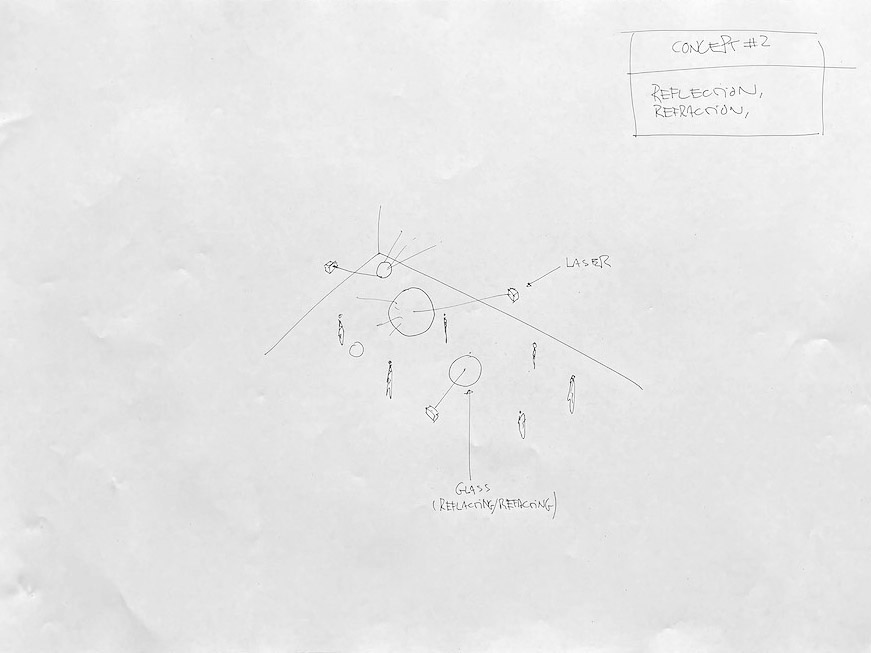 CONCEPT #2
REFLECTION,
REFRACTION,
LASER
GLASS
(REFLACTING/REFACTING)